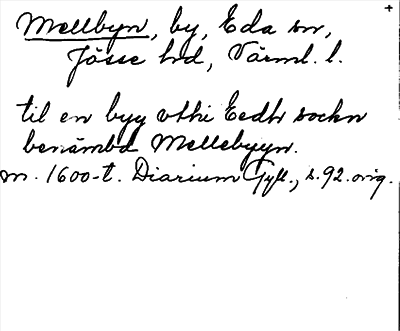 Mellbyn, by, Eda sn,
Jösse hd, Värml. l.
til en byy vthi Eedh sockn
benämbd Mellebyyn.
m. 1600-t. Diarium Gyll., s. 92. orig.